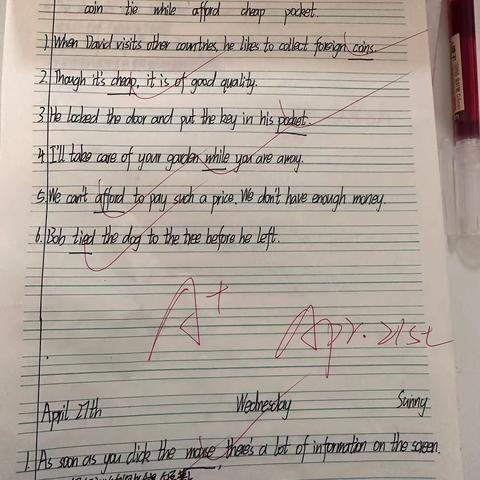 coin tie while afford cheap pocket.
1. When David visits other countries, he likes to collect foreign coins.
2. Though it's cheap, it is of good quality.
3. He locked the door and put the key in his pocket.
4. I'll take care of your garden while you are away.
5. We can't afford to pay such a price. We don't have enough money.
6. Bob tied the dog to the tree before he left.
A+
Apr. 21st
April 27th Wednesday Sunny
1. As soon as you click the mouse, there's a lot of information on the screen.